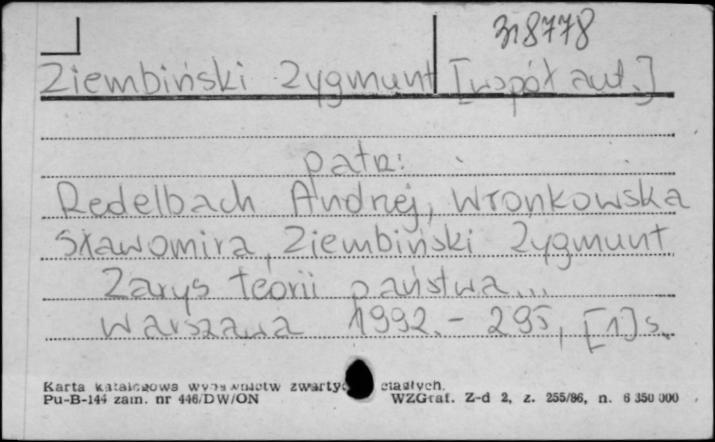 318778
Ziembiński Zygmunt [współaut.]
patrz:
Redelbach Andrzej, Wronkowska
Sławomira, Ziembiński Zygmunt
Zarys teorii państwa...
Warszawa 1992. - 295, [1] s.
Karta katalogowa wydawnictw zwartych ciągłych.
Pu-B-144 zam. nr 446/DW/ON WZGraf. Z-d 2, z. 255/86, n. 6 350 000